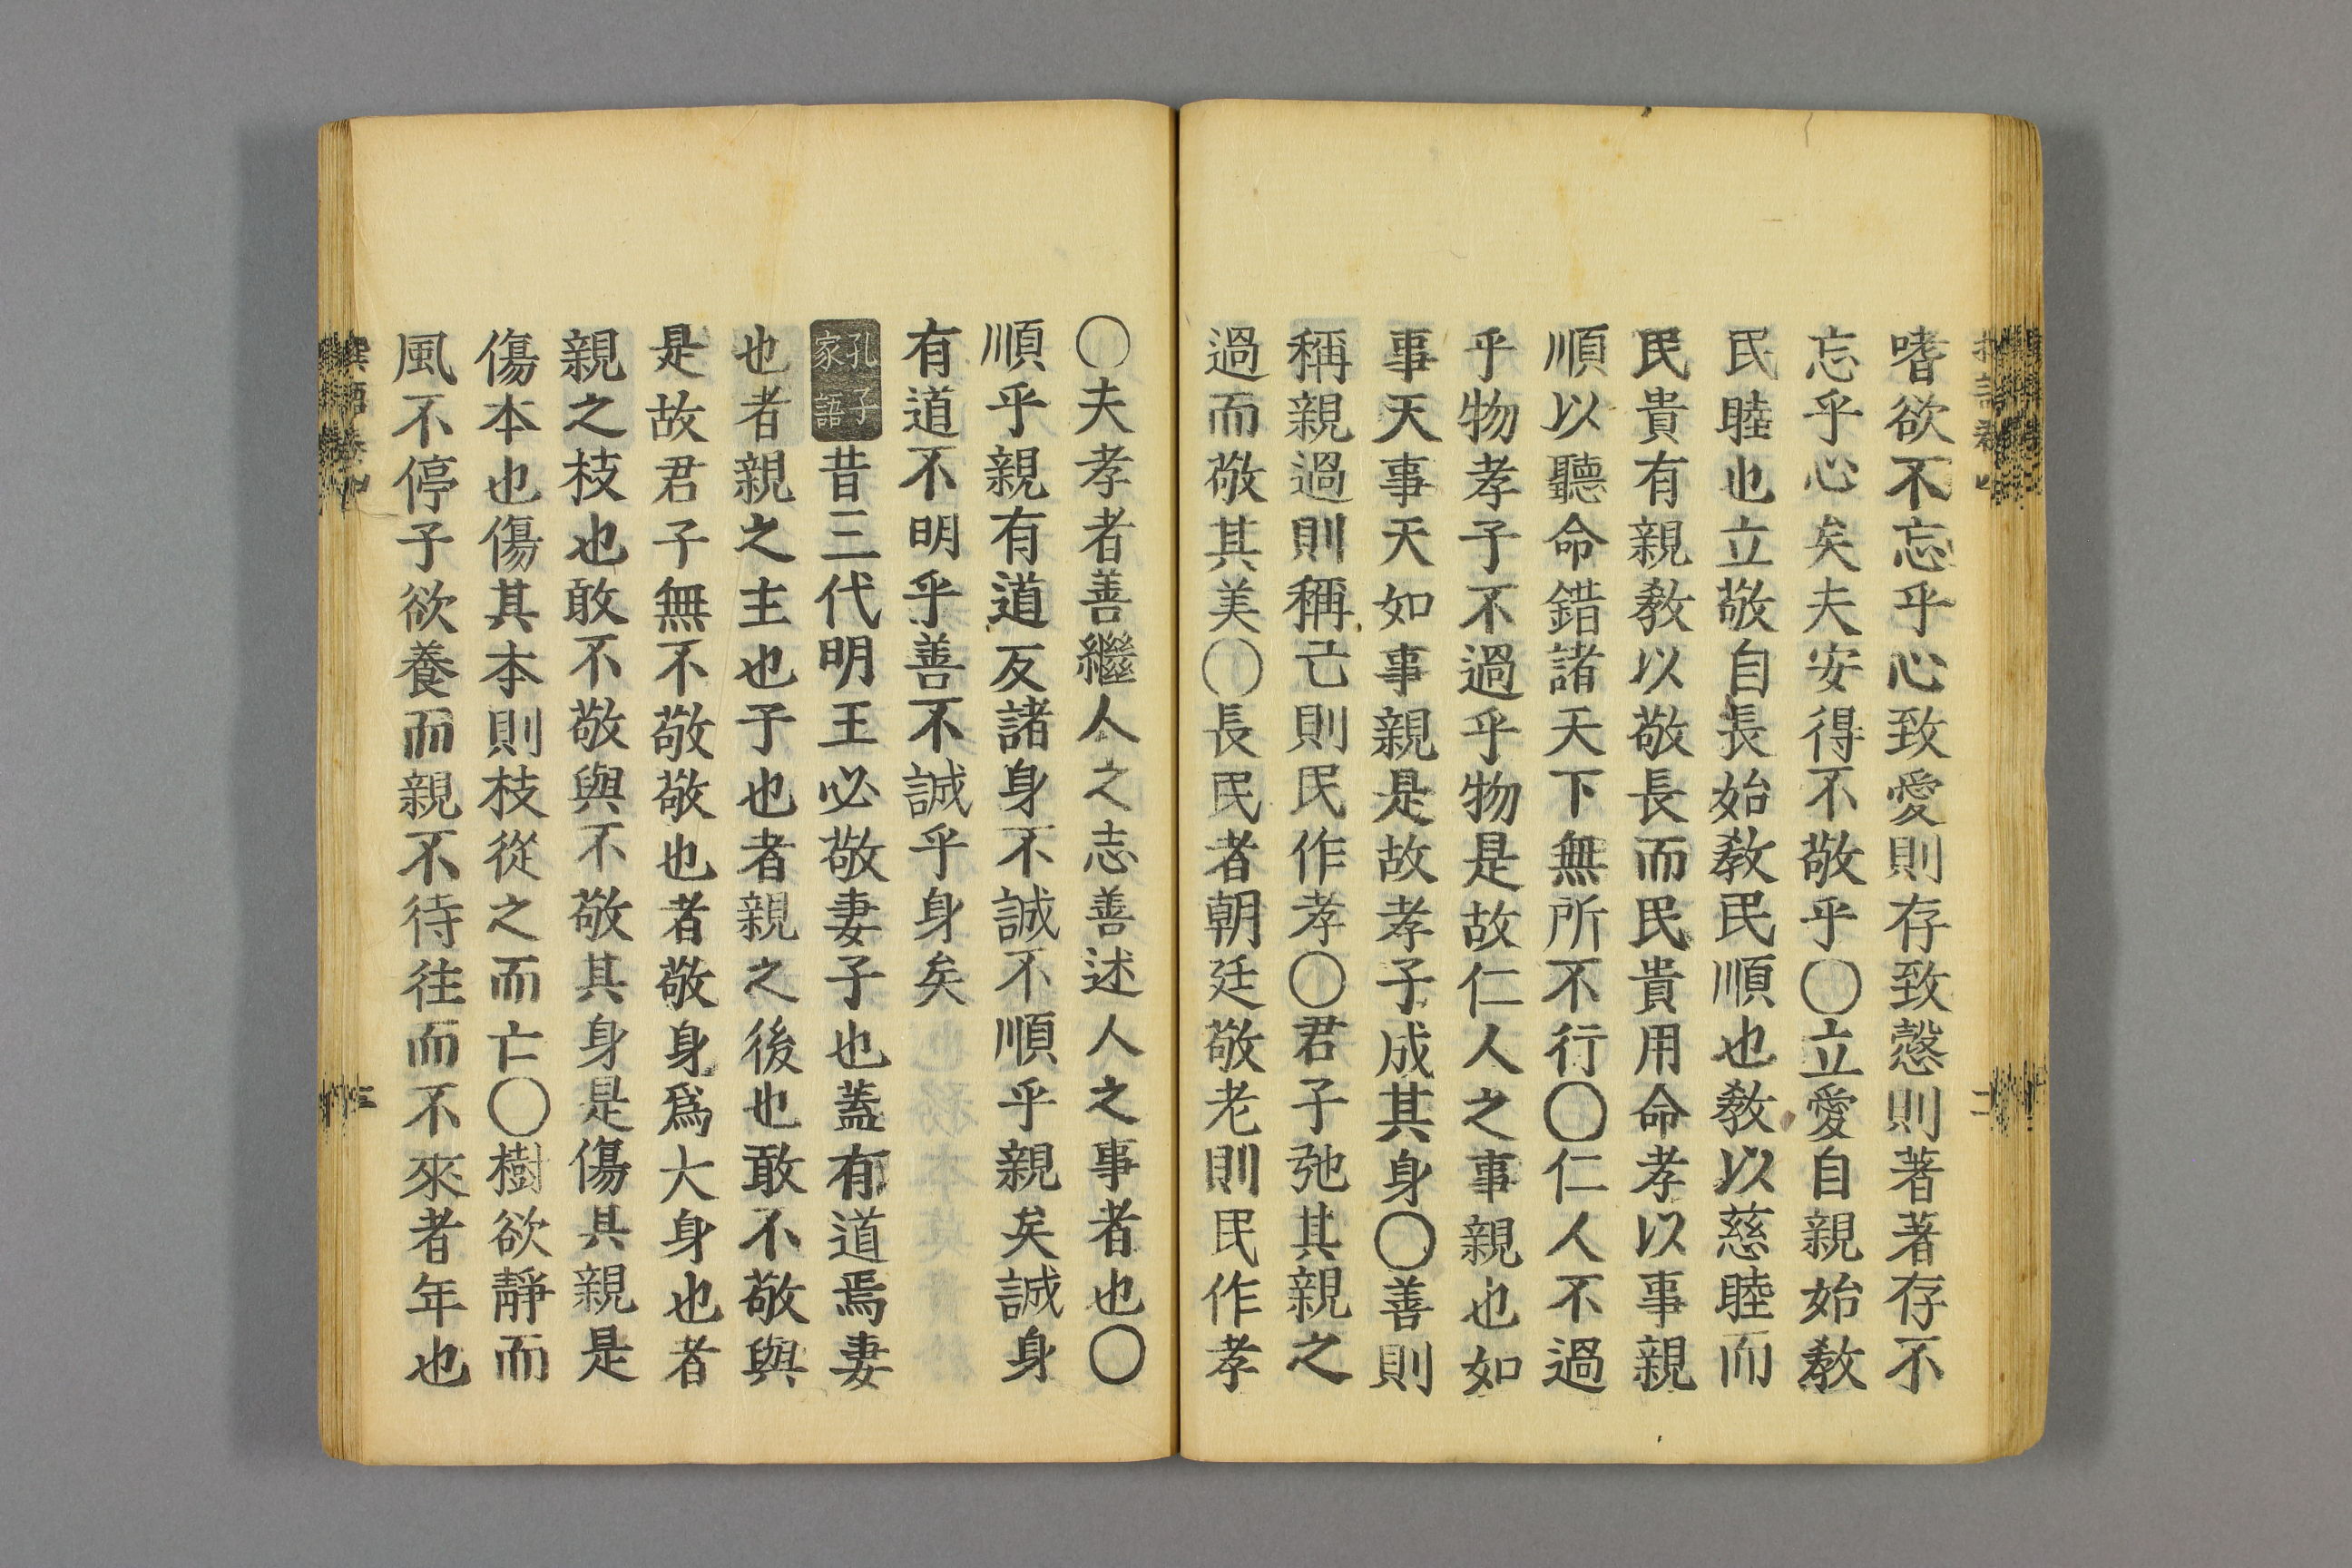 嗜欲不忘乎心致愛則存致慤則著著存不
忘乎心矣夫安得不敬乎〇立愛自親始教
民睦也立敬自長始教民順也教以慈睦而
民貴有親教以敬長而民貴用命孝以事親
順以聽命錯諸天下無所不行〇仁人不過
乎物孝子不過乎物是故仁人之事親也如
事天事天如事親是故孝子成其身〇善則
稱親過則稱己則民作孝〇君子弛其親之
過而敬其美〇長民者朝廷敬老則民作孝
〇夫孝者善繼人之志善述人之事者也〇
順乎親有道反諸身不誠不順乎親矣誠身
有道不明乎善不誠乎身矣
孔子家語昔三代明王必敬妻子也蓋有道焉妻
也者親之主也子也者親之後也敢不敬與
是故君子無不敬敬也者敬身爲大身也者
親之枝也敢不敬與不敬其身是傷其親是
傷本也傷其本則枝從之而亡〇樹欲靜而
風不停子欲養而親不待往而不來者年也
三